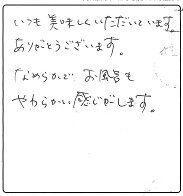 いつも美味しくいただいています。
ありがとうございます。
なめらかで お風呂も
やわらかい感じがします。